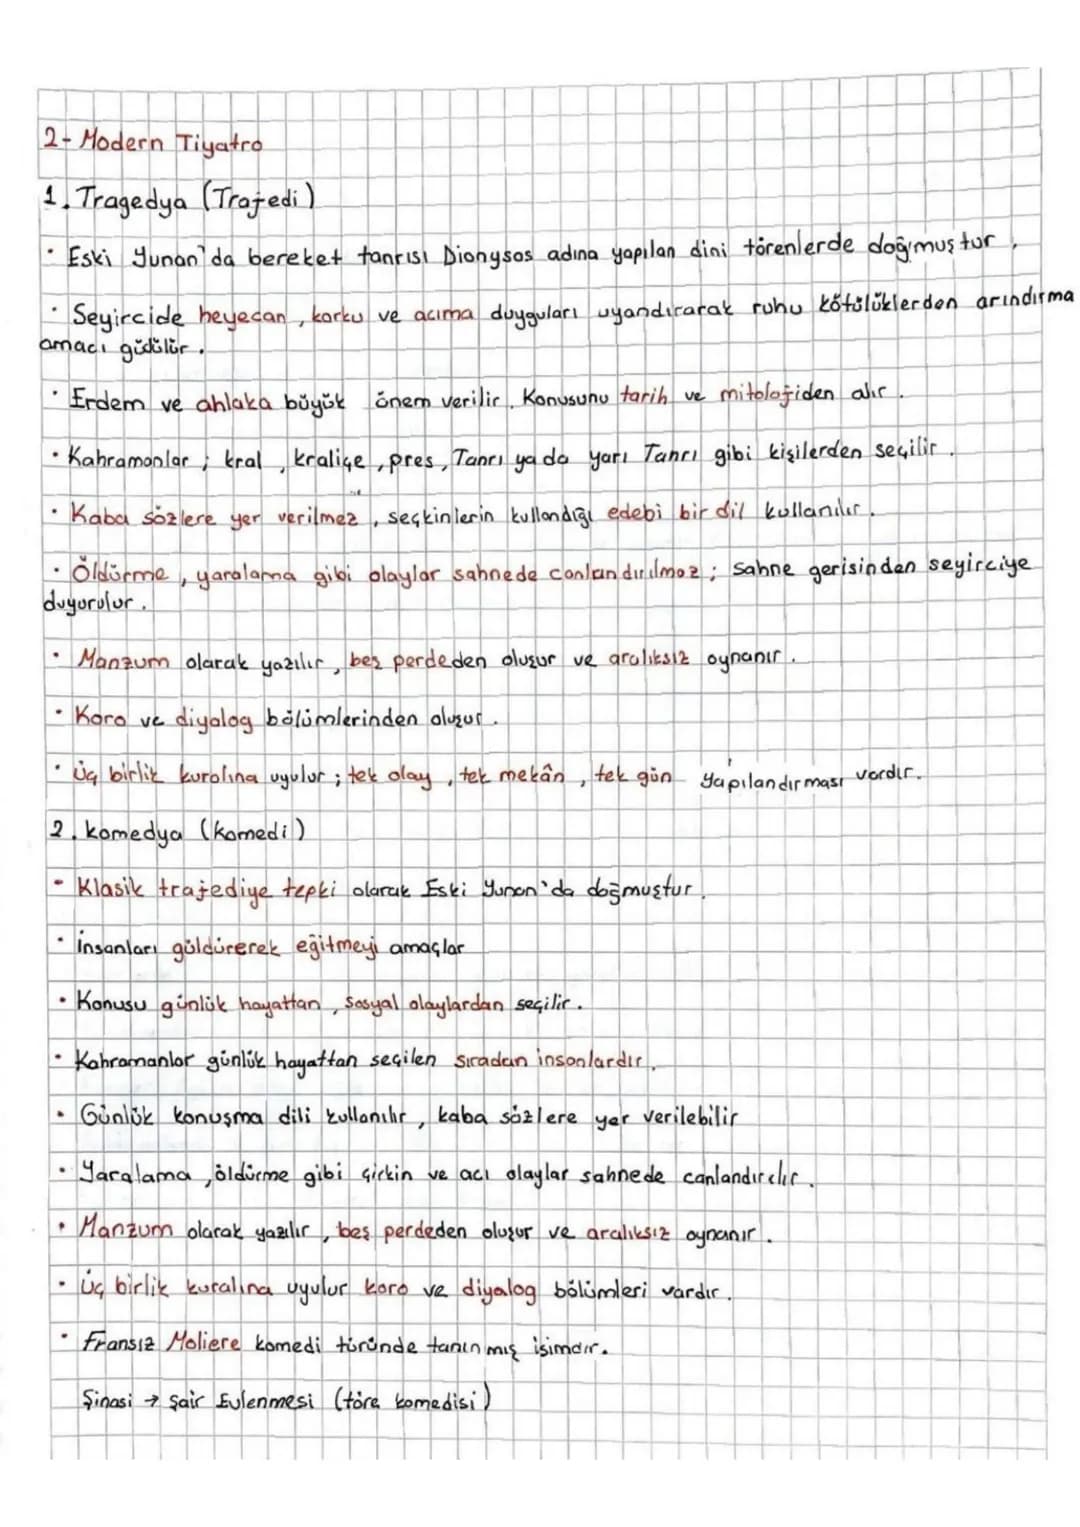 2- Modern Tiyatro
1. Tragedya (Trajedi)
· Eski Yunan'da bereket tanrısı Dionysos adına yapılan dini törenlerde doğmuştur.
· Seyircide heyecan, korku ve acıma duyguları uyandırarak ruhu kötülüklerden arındırma
amacı güdülür.
· Erdem ve ahlaka büyük önem verilir. Konusunu tarih ve mitolojiden alır.
· Kahramanlar; kral, kraliçe, pres, Tanrı ya da yarı Tanrı gibi kişilerden seçilir.
· Kaba sözlere yer verilmez, seçkinlerin kullandığı edebi bir dil kullanılır.
· Öldürme, yaralama gibi olaylar sahnede canlandırılmaz; sahne gerisinden seyirciye
duyurulur.
· Manzum olarak yazılır, beş perdeden oluşur ve aralıksız oynanır.
· Koro ve diyalog bölümlerinden oluşur.
· Üç birlik kuralına uyulur; tek olay, tek mekân, tek gün yapılandırması vardır.
2. komedya (komedi)
· Klasik trajediye tepki olarak Eski Yunan'da doğmuştur.
· İnsanları güldürerek eğitmeyi amaçlar
· Konusu günlük hayattan, sosyal olaylardan seçilir.
· Kahramanlar günlük hayattan seçilen sıradan insanlardır.
· Günlük konuşma dili kullanılır, kaba sözlere yer verilebilir
· Yaralama, öldürme gibi çirkin ve acı olaylar sahnede canlandırılır.
· Manzum olarak yazılır, beş perdeden oluşur ve aralıksız oynanır.
· Üç birlik kuralına uyulur koro ve diyalog bölümleri vardır.
· Fransız Moliere komedi türünde tanınmış isimdir.
Şinasi → Şair Evlenmesi (töre komedisi)